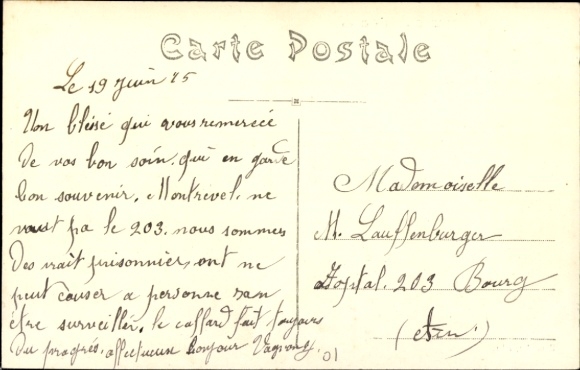 Carte Postale
Le 19 Juin 15
Un blésé qui vous remerecié
de vos bon soin. qui en garde
bon souvenir. Montrevel. ne
vaut pa le 203. nous sommes
des vrait prisonnier, ont ne
peut causer a personne san
être surveillér. le caffard fait toujours
du progrés. affectueux bonjour
Mademoiselle
M. Lauffenburger
Hopital. 203 Bourg
(Ain)
01